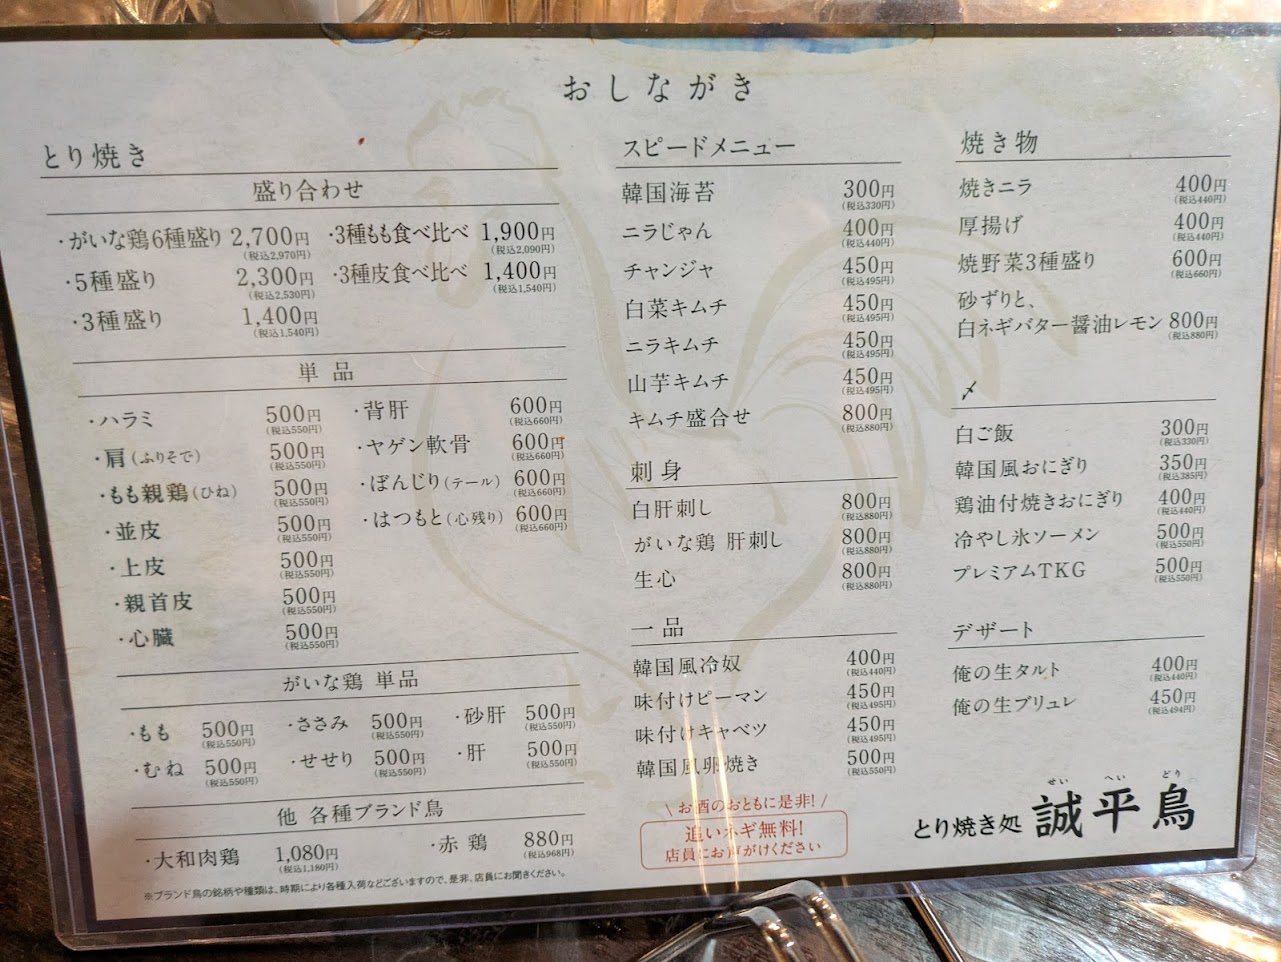 おしながき
とり焼き
盛り合わせ
・がいな鶏6種盛り 2,700円
(税込2,970円)
・5種盛り 2,300円
(税込2,530円)
・3種盛り 1,400円
(税込1,540円)
・3種もも食べ比べ 1,900円
(税込2,090円)
・3種皮食べ比べ 1,400円
(税込1,540円)
単品
・ハラミ 500円
(税込550円)
・肩(ふりそで) 500円
(税込550円)
・もも親鶏(ひね) 500円
(税込550円)
・並皮 500円
(税込550円)
・上皮 500円
(税込550円)
・親首皮 500円
(税込550円)
・心臓 500円
(税込550円)
・背肝 600円
(税込660円)
・ヤゲン軟骨 600円
(税込660円)
・ぼんじり(テール) 600円
(税込660円)
・はつもと(心残り) 600円
(税込660円)
がいな鶏 単品
・もも 500円
(税込550円)
・むね 500円
(税込550円)
・ささみ 500円
(税込550円)
・せせり 500円
(税込550円)
・砂肝 500円
(税込550円)
・肝 500円
(税込550円)
他 各種ブランド鳥
・大和肉鶏 1,080円
(税込1,180円)
・赤鶏 880円
(税込968円)
※ブランド鳥の銘柄や種類は、時期により各種入荷などございますので、是非、店員にお聞きください。
スピードメニュー
韓国海苔 300円
(税込330円)
ニラじゃん 400円
(税込440円)
チャンジャ 450円
(税込495円)
白菜キムチ 450円
(税込495円)
ニラキムチ 450円
(税込495円)
山芋キムチ 450円
(税込495円)
キムチ盛合せ 800円
(税込880円)
刺身
白肝刺し 800円
(税込880円)
がいな鶏 肝刺し 800円
(税込880円)
生心 800円
(税込880円)
一品
韓国風冷奴 400円
(税込440円)
味付けピーマン 450円
(税込495円)
味付けキャベツ 450円
(税込495円)
韓国風卵焼き 500円
(税込550円)
\ お酒のおともに是非! /
追いネギ無料!
店員にお声がけください
焼き物
焼きニラ 400円
(税込440円)
厚揚げ 400円
(税込440円)
焼野菜3種盛り 600円
(税込660円)
砂ずりと、
白ネギバター醤油レモン 800円
(税込880円)
〆
白ご飯 300円
(税込330円)
韓国風おにぎり 350円
(税込385円)
鶏油付焼きおにぎり 400円
(税込440円)
冷やし氷ソーメン 500円
(税込550円)
プレミアムTKG 500円
(税込550円)
デザート
俺の生タルト 400円
(税込440円)
俺の生ブリュレ 450円
(税込494円)
せい へい どり
とり焼き処 誠平鳥